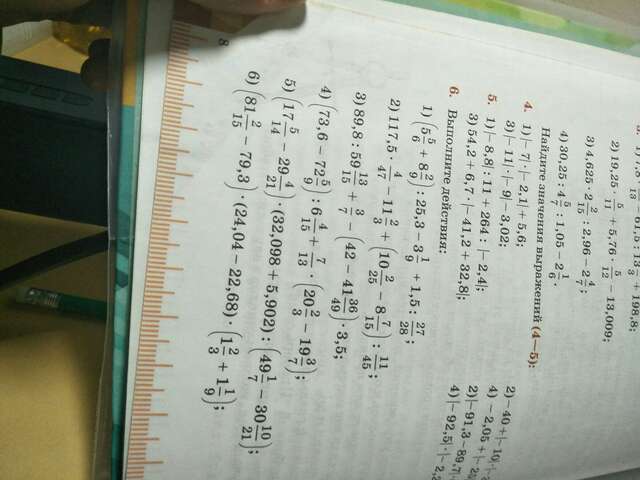 2) 19,25 · 5/11 + 5,76 · 5/12 − 13,009;
3) 4,625 · 2 2/15 : 2,96 − 2 4/7;
4) 30,25 : 4 5/7 : 1,05 − 2 1/6.
Найдите значения выражений (4—5):
4. 1) |− 7| · |− 2,1| + 5,6;
2) − 40 + |− 10|
3) |− 11| · |− 9| − 3,02;
4) − 2,05 + |− 2
5. 1) |− 8,8| : 11 + 264 : |− 2,4|;
2) |− 91,3 − 89,7|
3) 54,2 + 6,7 · |− 41,2 + 32,8|;
4) |− 92,5| · |− 2,
6. Выполните действия:
1) (5 5/6 + 8 2/9) · 25,3 − 3 1/9 + 1,5 : 27/28;
2) 117,5 · 4/47 − 11 2/3 + (10 2/25 − 8 7/15) : 11/45;
3) 89,8 : 59 13/15 + 3/7 − (42 − 41 36/49) · 3,5;
4) (73,6 − 72 5/9) : 6 4/15 + 7/13 · (20 2/3 − 19 3/7);
5) (17 5/14 − 29 4/21) · (32,098 + 5,902) : (49 1/7 − 30 10/21);
6) (81 2/15 − 79,3) · (24,04 − 22,68) · (1 2/3 + 1 1/9);
8